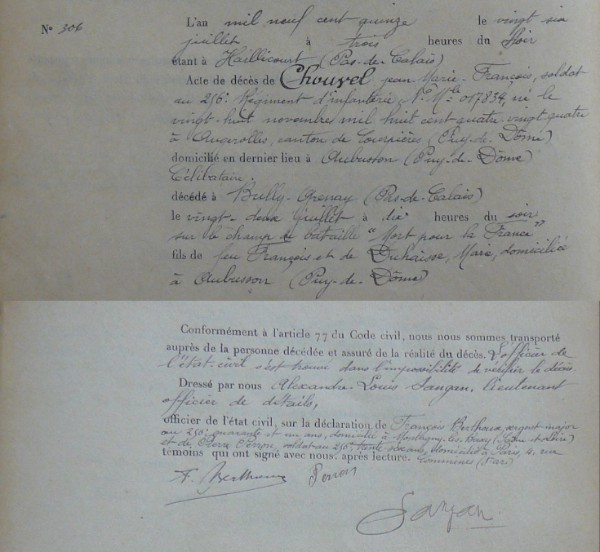 N° 306
L'an mil neuf cent quinze le vingt six
juillet à trois heures du soir
étant à Haillicourt (Pas-de-Calais)
Acte de décès de Chouvel Jean-Marie-François, soldat
au 256e Régiment d'infanterie, N° Mle 017834, né le
vingt-huit novembre mil huit cent-quatre vingt-quatre
à Augerolles, canton de Courpières (Puy-de-Dôme)
domicilié en dernier lieu à Aubusson (Puy-de-Dôme)
Célibataire.
décédé à Bully-Grenay (Pas-de-Calais)
le vingt-deux juillet à dix heures du soir
sur le champ de bataille "Mort pour la France"
fils de feu François et de Marie, domiciliée
à Aubusson (Puy-de-Dôme)
Conformément à l'article 77 du Code civil, nous nous sommes transporté
auprès de la personne décédée et assuré de la réalité du décès. L'officier de
l'état-civil s'est trouvé dans l'impossibilité de vérifier le décès.
Dressé par nous Alexandre Louis lieutenant
officier de détails,
officier de l'état civil, sur la déclaration de François sergent major
au 256e quarante et un ans, domicilié à Montigny (Saône et Loire)
et de Pierre soldat au 256e, domicilié à Paris, 4, rue
témoins qui ont signé avec nous, après lecture. (Paris)